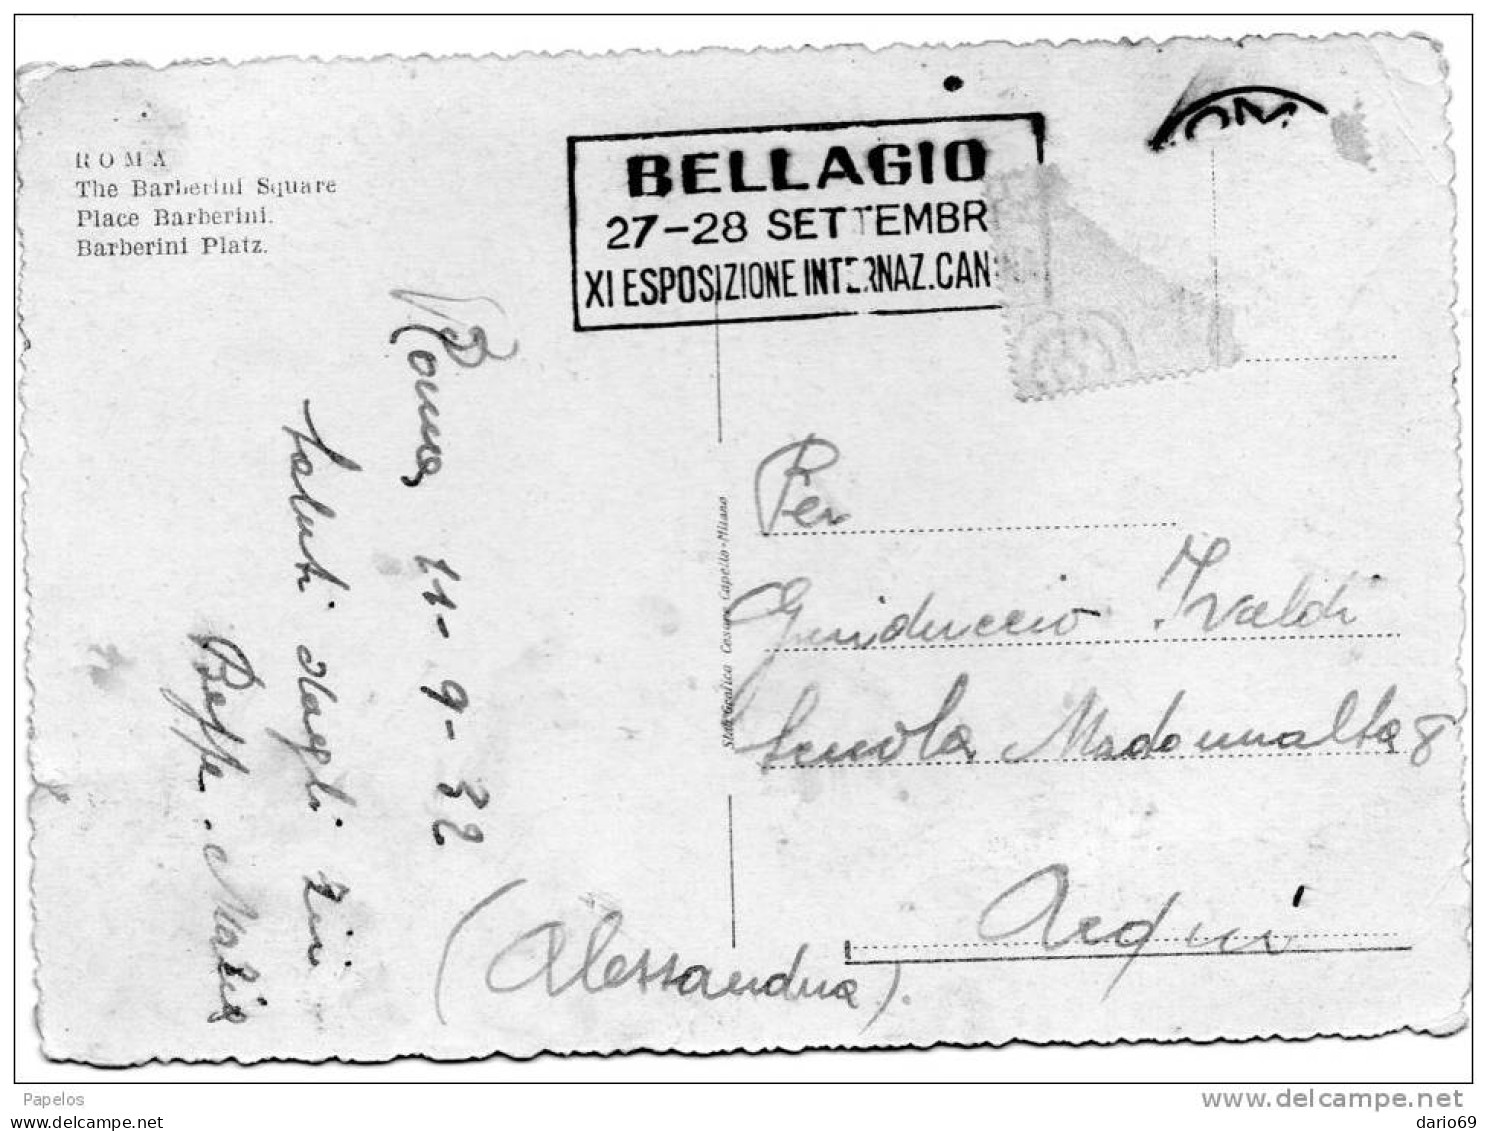 ROMA
The Barberini Square
Place Barberini.
Barberini Platz.
BELLAGIO
27-28 SETTEMBR
XI ESPOSIZIONE INTERNAZ.CAN
OM
Roma, 11-9-32
Saluti dagli zii
Beppe. Maria
Stab. Grafico Cesare Capello-Milano
Per
Guiduccio Ivaldi
Scuola Madonnalta 8
Acqui
(Alessandria).
Papelos
https://www.delcampe.net
www.delcampe.net
dario69